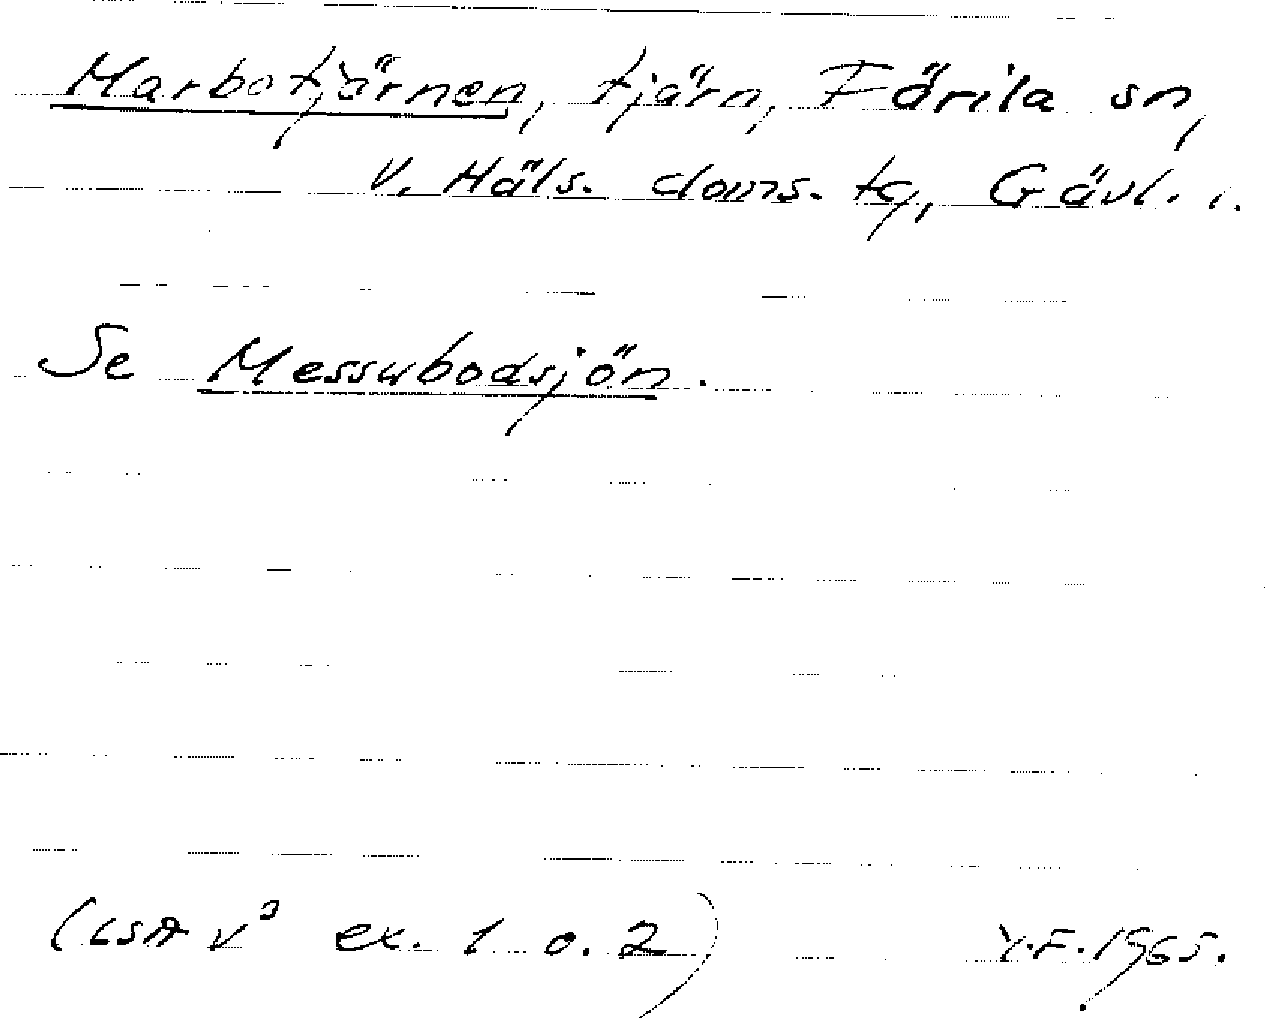 Marbotjärnen, tjärn, Färila sn,
V. Häls. doms. tg, Gävl. l.
Se Messubodsjön.
(LSA V³ ex. 1 o. 2) Y.F. 1965.